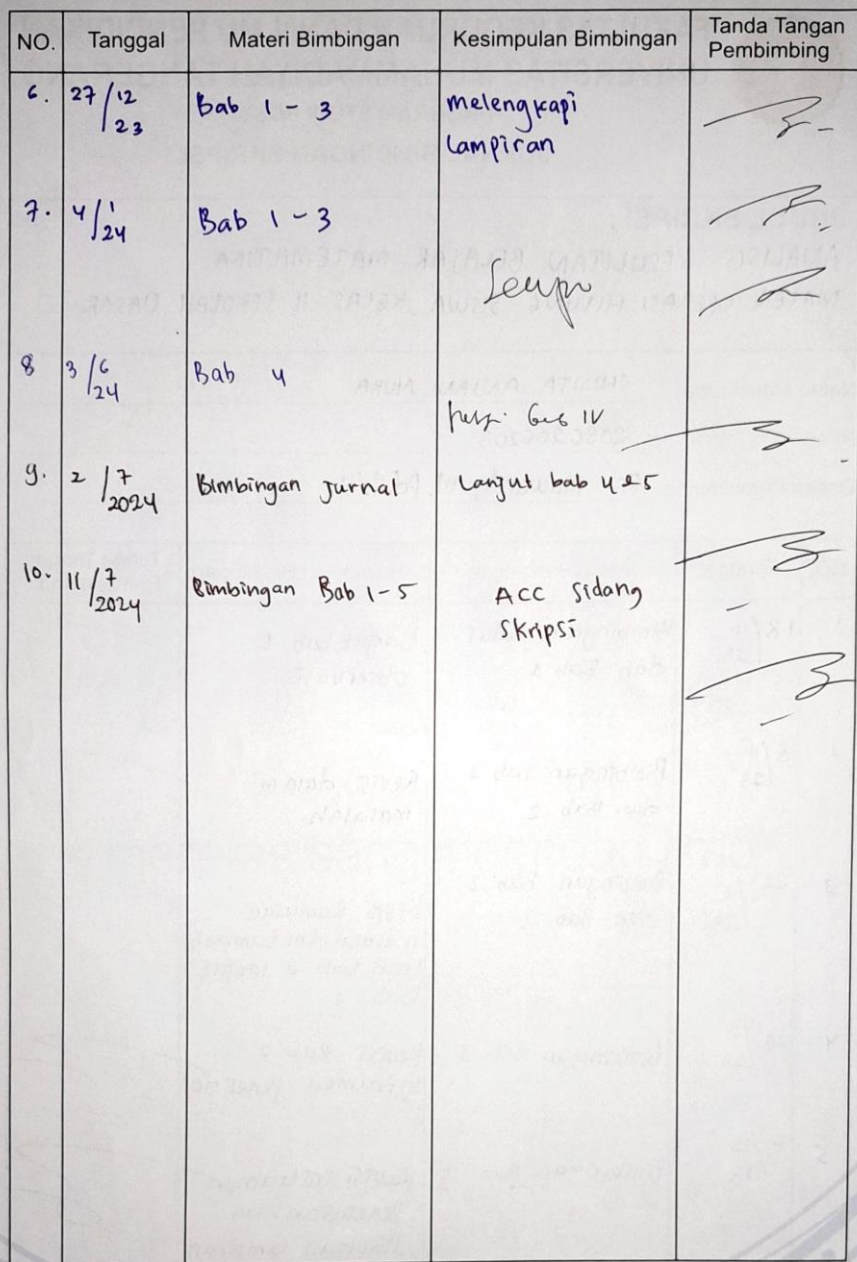 NO. Tanggal Materi Bimbingan Kesimpulan Bimbingan Tanda Tangan
Pembimbing
6. 27/12 Bab 1 - 3 melengkapi
23 Lampiran
7. 4/1 Bab 1 - 3
24
8 3/6 Bab 4
24
IV
9. 2/7 Bimbingan Jurnal Lanjut bab 4 & 5
2024
10. 11/7 Bimbingan Bab 1-5 ACC Sidang
2024 Skripsi